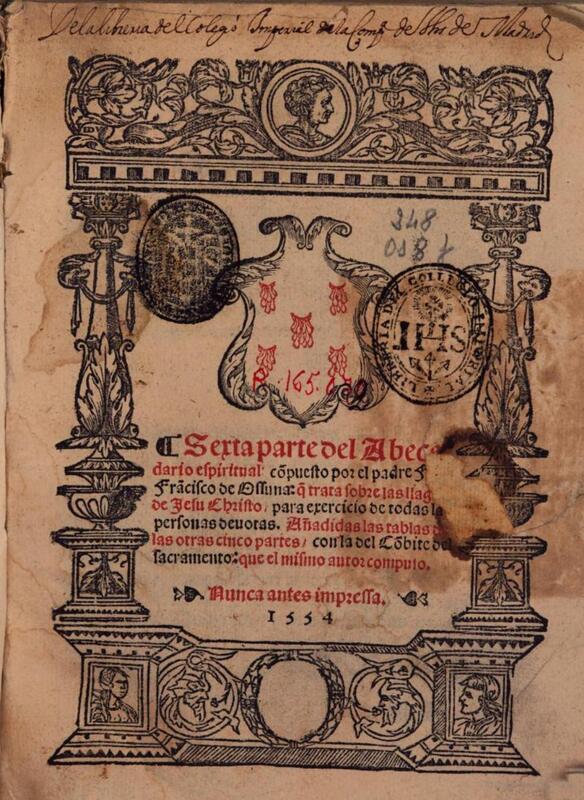 De la libreria del Colegio Imperial de la Comp.ª de Jhs de Madrid
348
LIBRERIA DEL COLLEGIO IMPERIAL
IHS
R. 165.
Sexta parte del Abece
dario espiritual cõpuesto por el padre F
Frãcisco de Ossuna: q̃ trata sobre las llag
de Jesu Christo, para exercicio de todas la
personas deuotas. Añadidas las tablas d
las otras cinco partes, con la del Cõbite del
sacramento: que el mismo autor compuso.
Nunca antes impressa.
1554